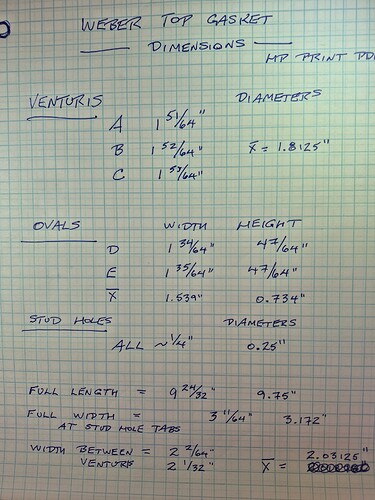 WEBER TOP GASKET
DIMENSIONS
HP PRINT PD
VENTURIS DIAMETERS
A 1 51/64"
B 1 52/64" x̄ = 1.8125"
C 1 53/64"
OVALS WIDTH HEIGHT
D 1 34/64" 47/64"
E 1 35/64" 47/64"
X̄ 1.539" 0.734"
STUD HOLES DIAMETERS
ALL ~ 1/4" 0.25"
FULL LENGTH = 9 24/32" 9.75"
FULL WIDTH = 3 11/64" 3.172"
AT STUD HOLE TABS
WIDTH BETWEEN = 2 2/64" 2.03125"
VENTURE 2 1/32" x̄ =